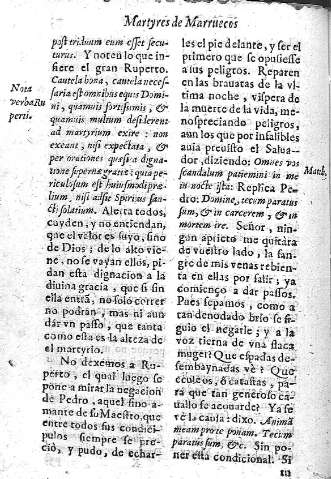 Martyres de Marruecos
post triduum eum esset secu-
turus. Y noten lo que in-
fiere el gran Ruperto.
Cautela bona, cautela neces-
saria est omnibus equis Domi-
ni, quamuis fortissimis, &
quamuis multum desiderent
ad martyrium exire: non
exeant, nisi expectata, &
per orationes quæsita digna-
tione supernæ gratiæ: quia pe-
riculosum est huiusmodi præ-
lium, nisi adsit Spiritus San-
cti solatium. Alerta todos,
cuyden, y no entiendan,
que el valor es suyo, sino
de Dios; de lo alto vie-
ne, no se vayan ellos, pi-
dan esta dignacion a la
diuina gracia, que si sin
ella entrã, no solo correr
no podran, mas ni aun
dar vn passo, que tanta
como esta es la alteza de
el martyrio.
No dexemos a Ru-
perto, el qual luego se
pone a mirar la negacion
de Pedro, aquel fino a-
mante de su Maestro, que
entre todos sus condici-
pulos siempre se pre-
ciò, y pudo, de echar-
Nota
verba Ru
perti.
les el pie delante, y ser el
primero que se opusiesse
a sus peligros. Reparen
en las brauatas de la vl-
tima noche, vispera de
la muerte de la vida, me-
nospreciando peligros,
aun los que por infalibles
auia preuisto el Salua-
dor, diziendo: Omnes vos
scandalum patiemini in me
in nocte ista: Replica Pe-
dro: Domine, tecum paratus
sum, & in carcerem, & in
mortem ire. Señor, nin-
gun aprieto me quitarà
de vuestro lado, la san-
gre de mis venas rebien-
ta en ellas por salir; ya
comienço a dar passos.
Pues sepamos, como a
tan denodado brio se si-
guio el negarle; y a la
voz tierna de vna flaca
muger? Que espadas de-
sembaynadas vè? Que
eculeos, ò catastas, pa-
ra que tan generoso ca-
uallo se acouarde? Ya se
vè la causa: dixo. Animã
meam pro te ponam. Tecum
paratus sum, &c. Sin po-
ner esta condicional. Si
tu
Matth.